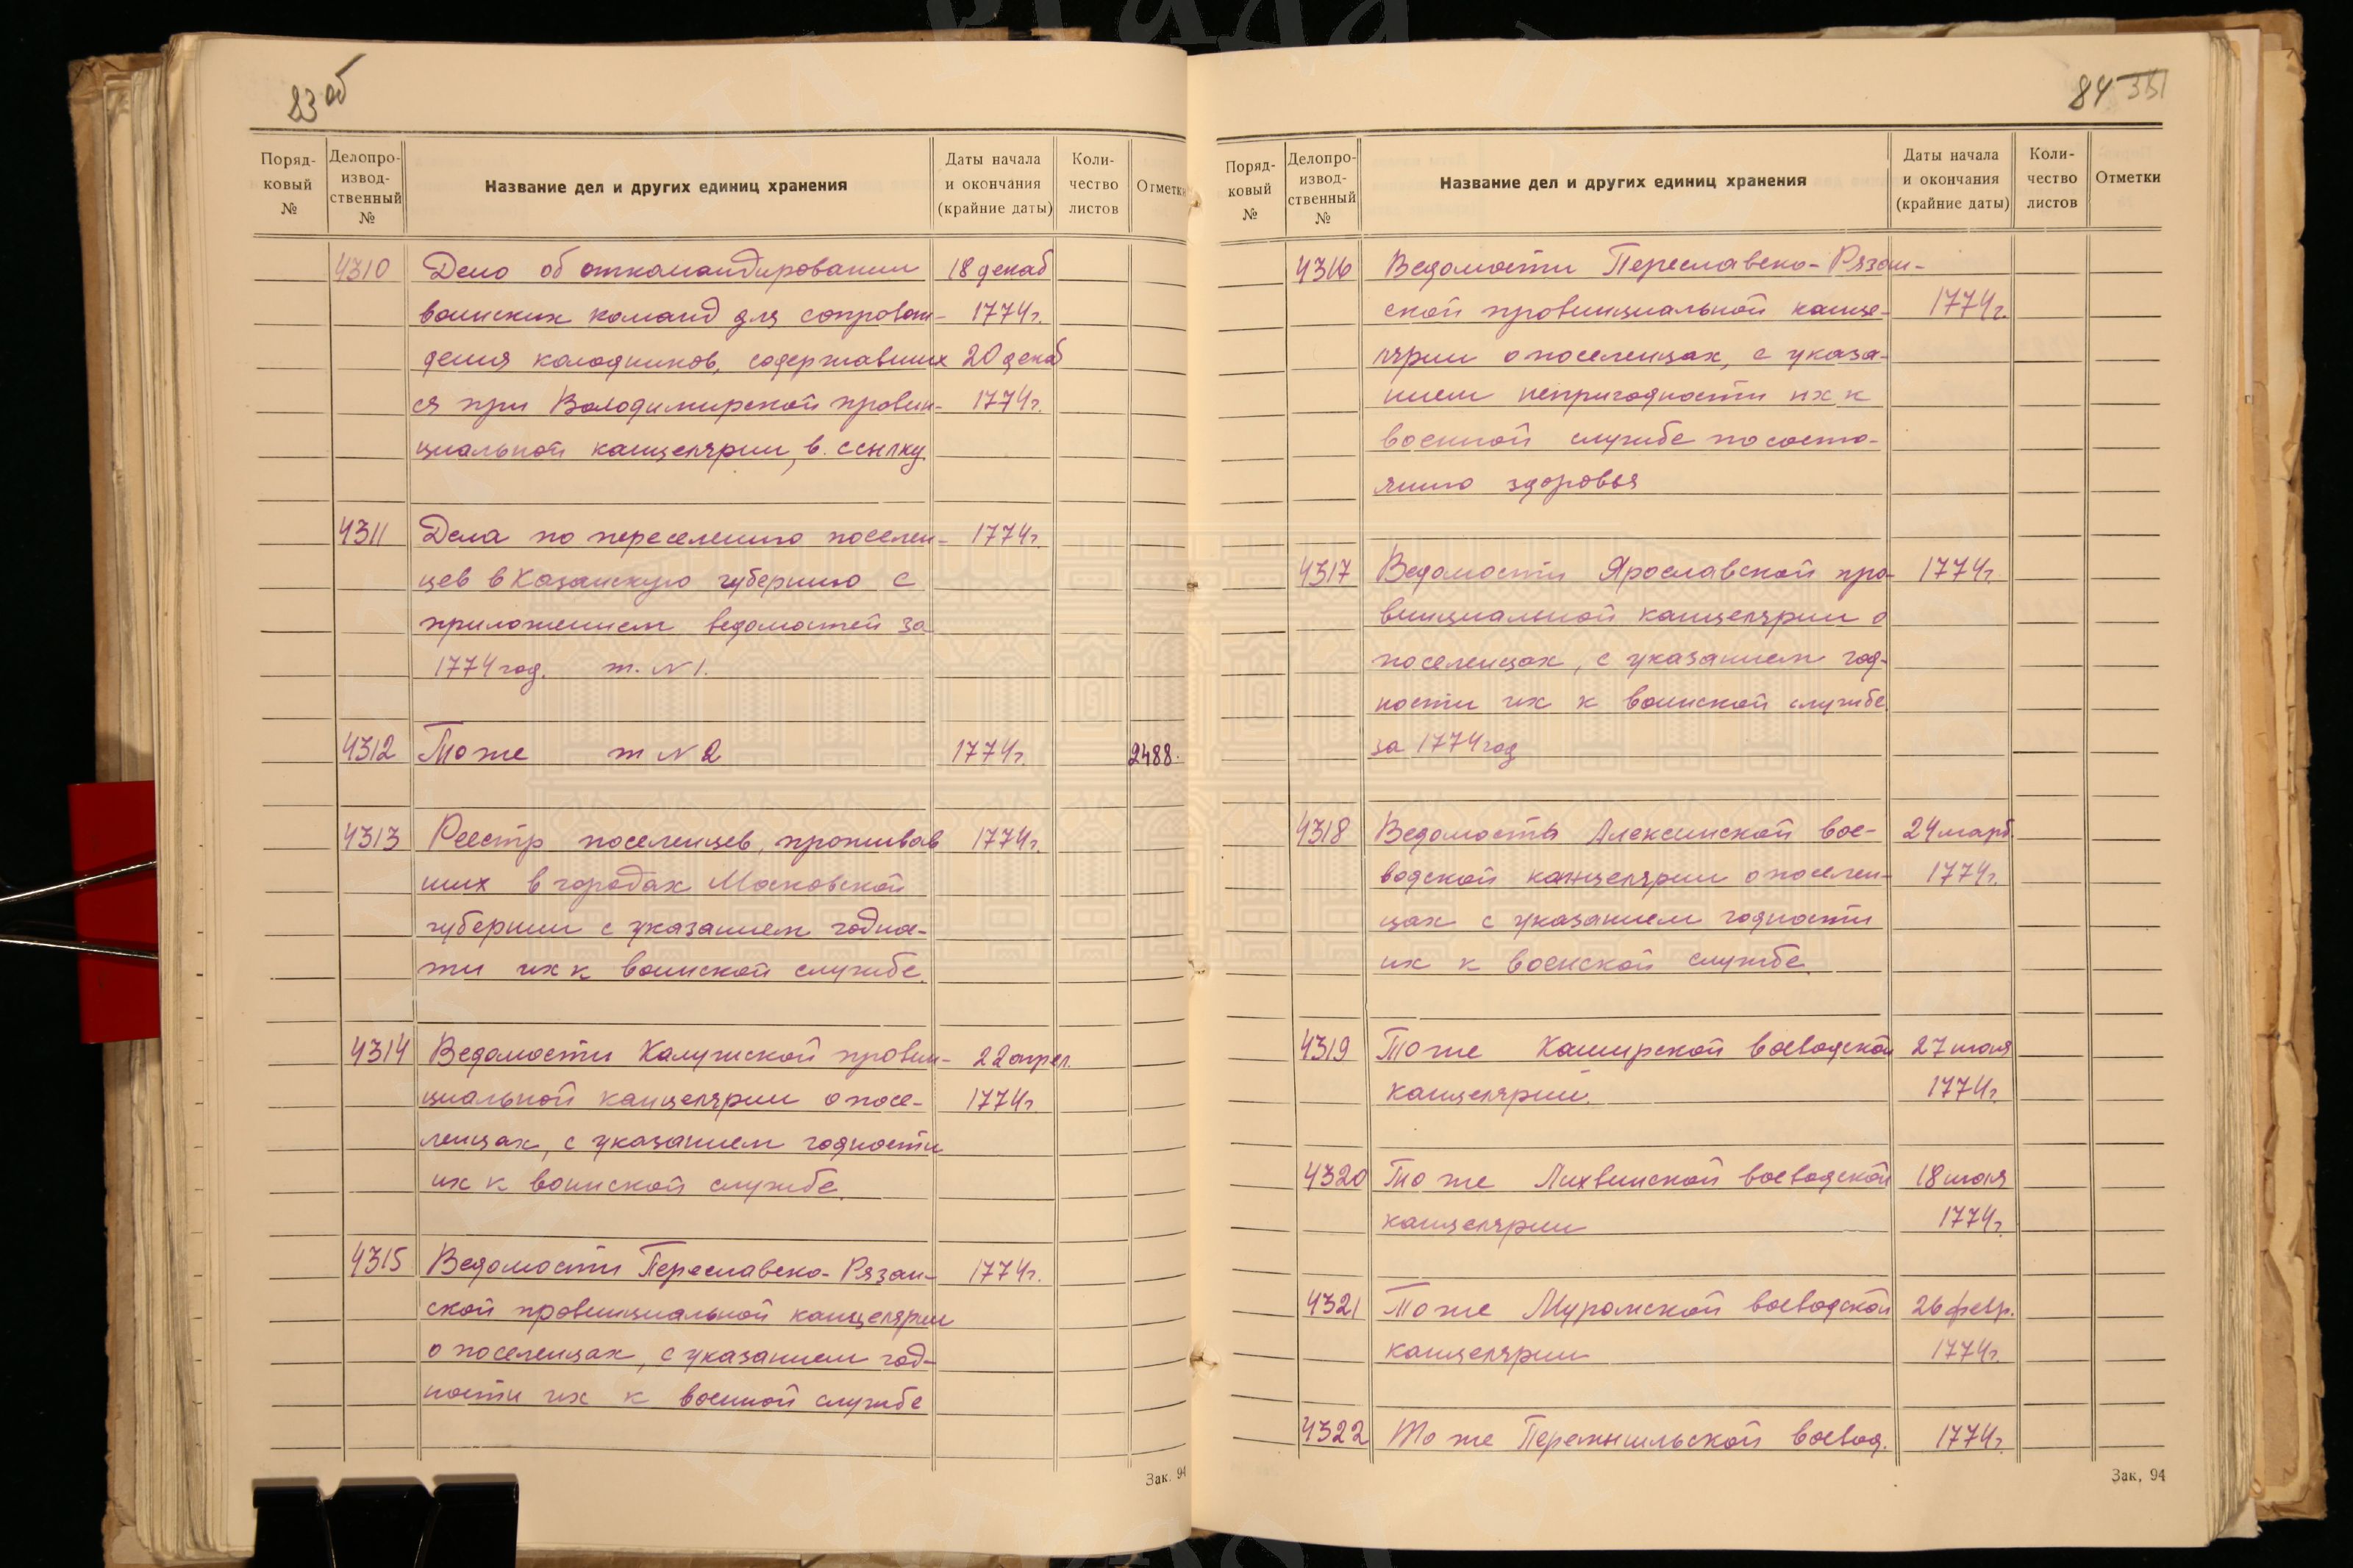 83 об
Поряд-
ковый
№
Делопро-
извод-
ственный
№
Название дел и других единиц хранения
Даты начала
и окончания
(крайние даты)
Коли-
чество
листов
Отметки
4310 Дело об откомандировании 18 декаб
воинских команд для сопровож- 1774г.
дения колодников, содержавших 20 декаб
ся при Володимирской провин- 1774г.
циальной канцелярии, в ссылку.
4311 Дела по переселению поселен- 1774г.
цев в Казанскую губернию с
приложением ведомостей за
1774 год. т. N 1.
4312 То же т N 2 1774г. 2488.
4313 Реестр поселенцев, проживав 1774г.
ших в городах Московской
губернии с указанием годнос-
ти их к воинской службе.
4314 Ведомости Калужской провин- 22 апрел.
циальной канцелярии о посе- 1774г.
ленцах, с указанием годности
их к воинской службе.
4315 Ведомости Переславско-Рязан- 1774г.
ской провинциальной канцелярии
о поселенцах, с указанием год-
ности их к военной службе
Зак. 94
84
Поряд-
ковый
№
Делопро-
извод-
ственный
№
Название дел и других единиц хранения
Даты начала
и окончания
(крайние даты)
Коли-
чество
листов
Отметки
4316 Ведомости Переславско-Рязан-
ской провинциальной канце- 1774г.
лярии о поселенцах, с указа-
нием непригодности их к
военной службе по состо-
янию здоровья
4317 Ведомости Ярославской про- 1774г.
винциальной канцелярии о
поселенцах, с указанием год-
ности их к воинской службе
за 1774 год
4318 Ведомость Алексинской вое- 24 марта
водской канцелярии о поселен- 1774г.
цах с указанием годности
их к военской службе.
4319 То же Каширской воеводской 27 июля
канцелярии. 1774г.
4320 То же Лихвинской воеводской 18 июля
канцелярии 1774г.
4321 То же Муромской воеводской 26 февр.
канцелярии 1774г.
4322 То же Перемышльской воевод. 1774г.
Зак. 94